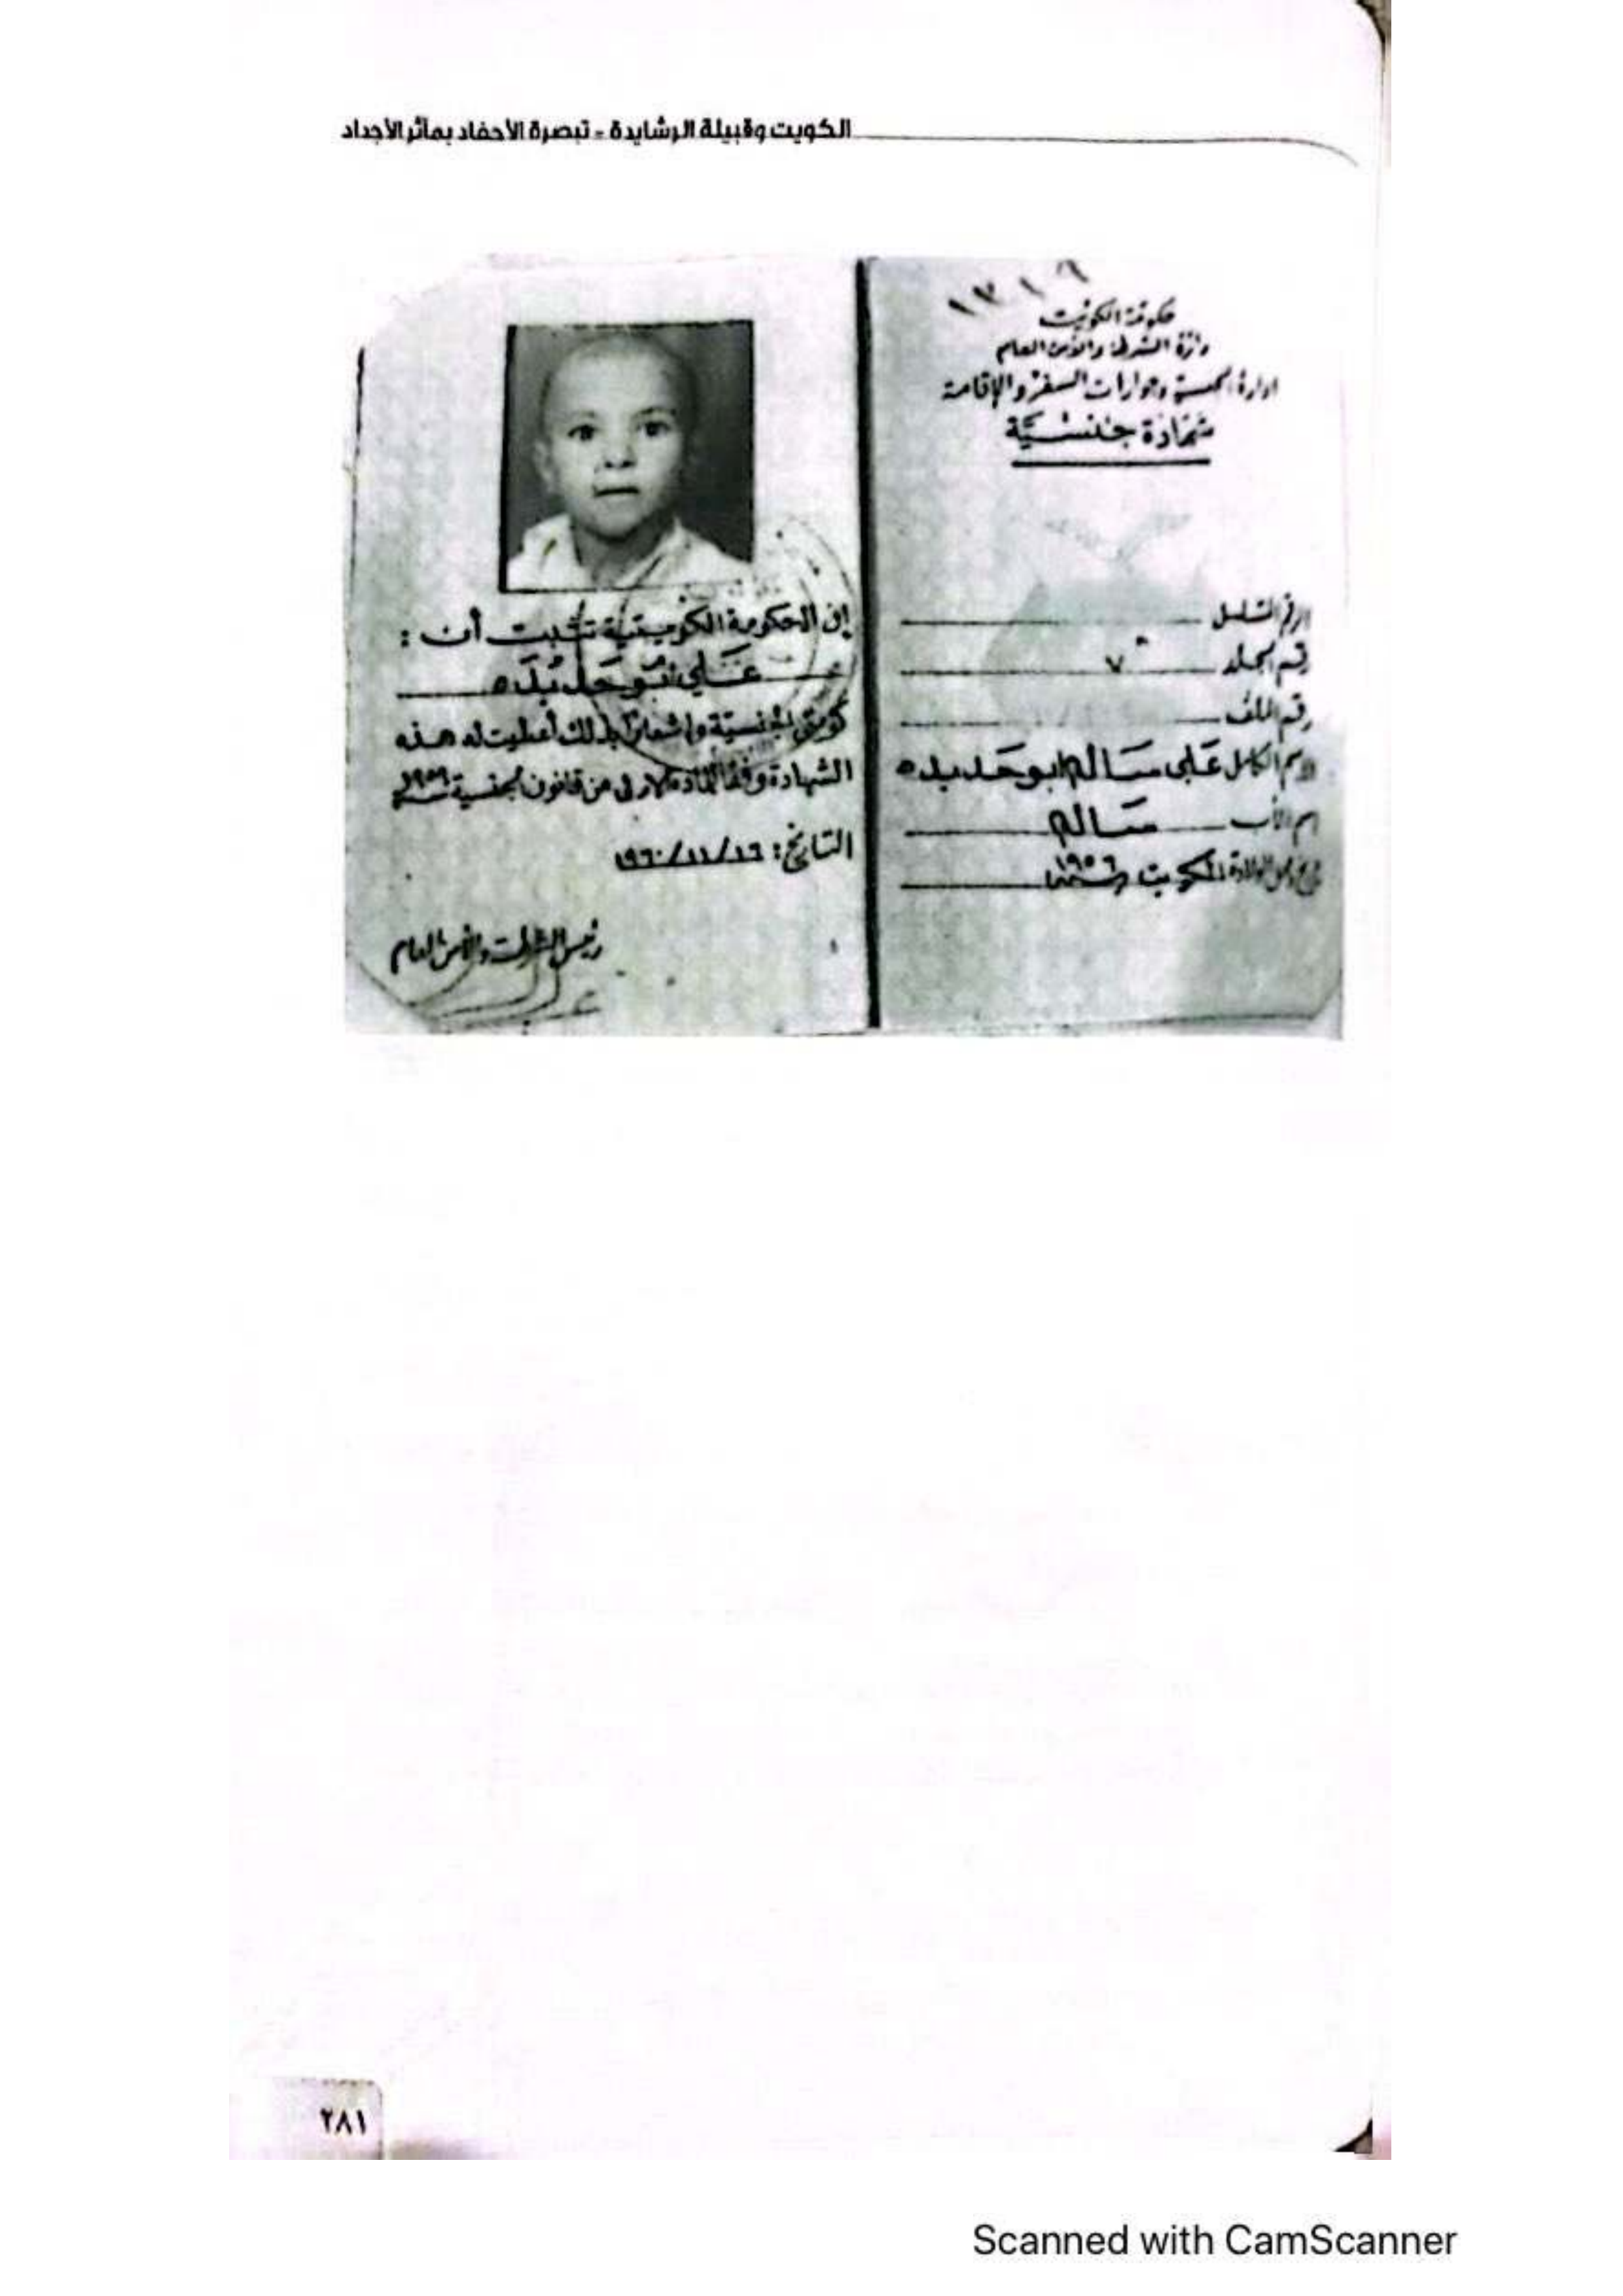 الكويت وقبيلة الرشايدة - تبصرة الأحفاد بمآثر الأجداد
١٣١٩
حكومة الكويت
دائرة الشرطة والأمن العام
ادارة الجنسية وجوازات السفر والإقامة
شهادة جنسية
الرقم المسلسل
رقم المجلد ٧
رقم الملف
الاسم الكامل علي سالم ابو حديده
اسم الأب سالم
الولادة الكويت سنة ١٩٥٦
إن الحكومة الكويتية تثبت أن :
علي ابو حديده
كويتي الجنسية وإشعاراً بذلك أعطيت له هذه
الشهادة وفقاً للمادة الاولى من قانون الجنسية سنة ١٩٥٩
التاريخ: ١٩٦٠/١١/١٦
رئيس الشرطة والأمن العام
٢٨١
Scanned with CamScanner